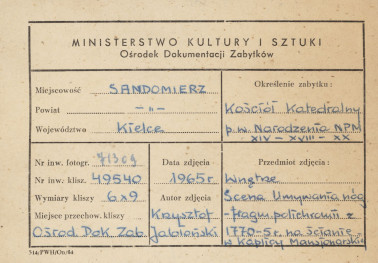 MINISTERSTWO KULTURY I SZTUKI
Ośrodek Dokumentacji Zabytków
Miejscowość SANDOMIERZ
Powiat — „ —
Województwo Kielce
Określenie zabytku:
Kościół Katedralny
p.w. Narodzenia NPM
XIV - XVIII - XX
Nr inw. fotogr. 71309
Nr inw. klisz. 49540
Wymiary kliszy 6x9
Miejsce przechow. kliszy
Ośrod. Dok. Zab
Data zdjęcia
1965 r.
Autor zdjęcia
Krysztof
Jabłoński
Przedmiot zdjęcia:
Wnętrze
Scena Umywania nóg
- fragm. polichromii z
1770-5 r. na ścianie
w Kaplicy Mansjonarskiej